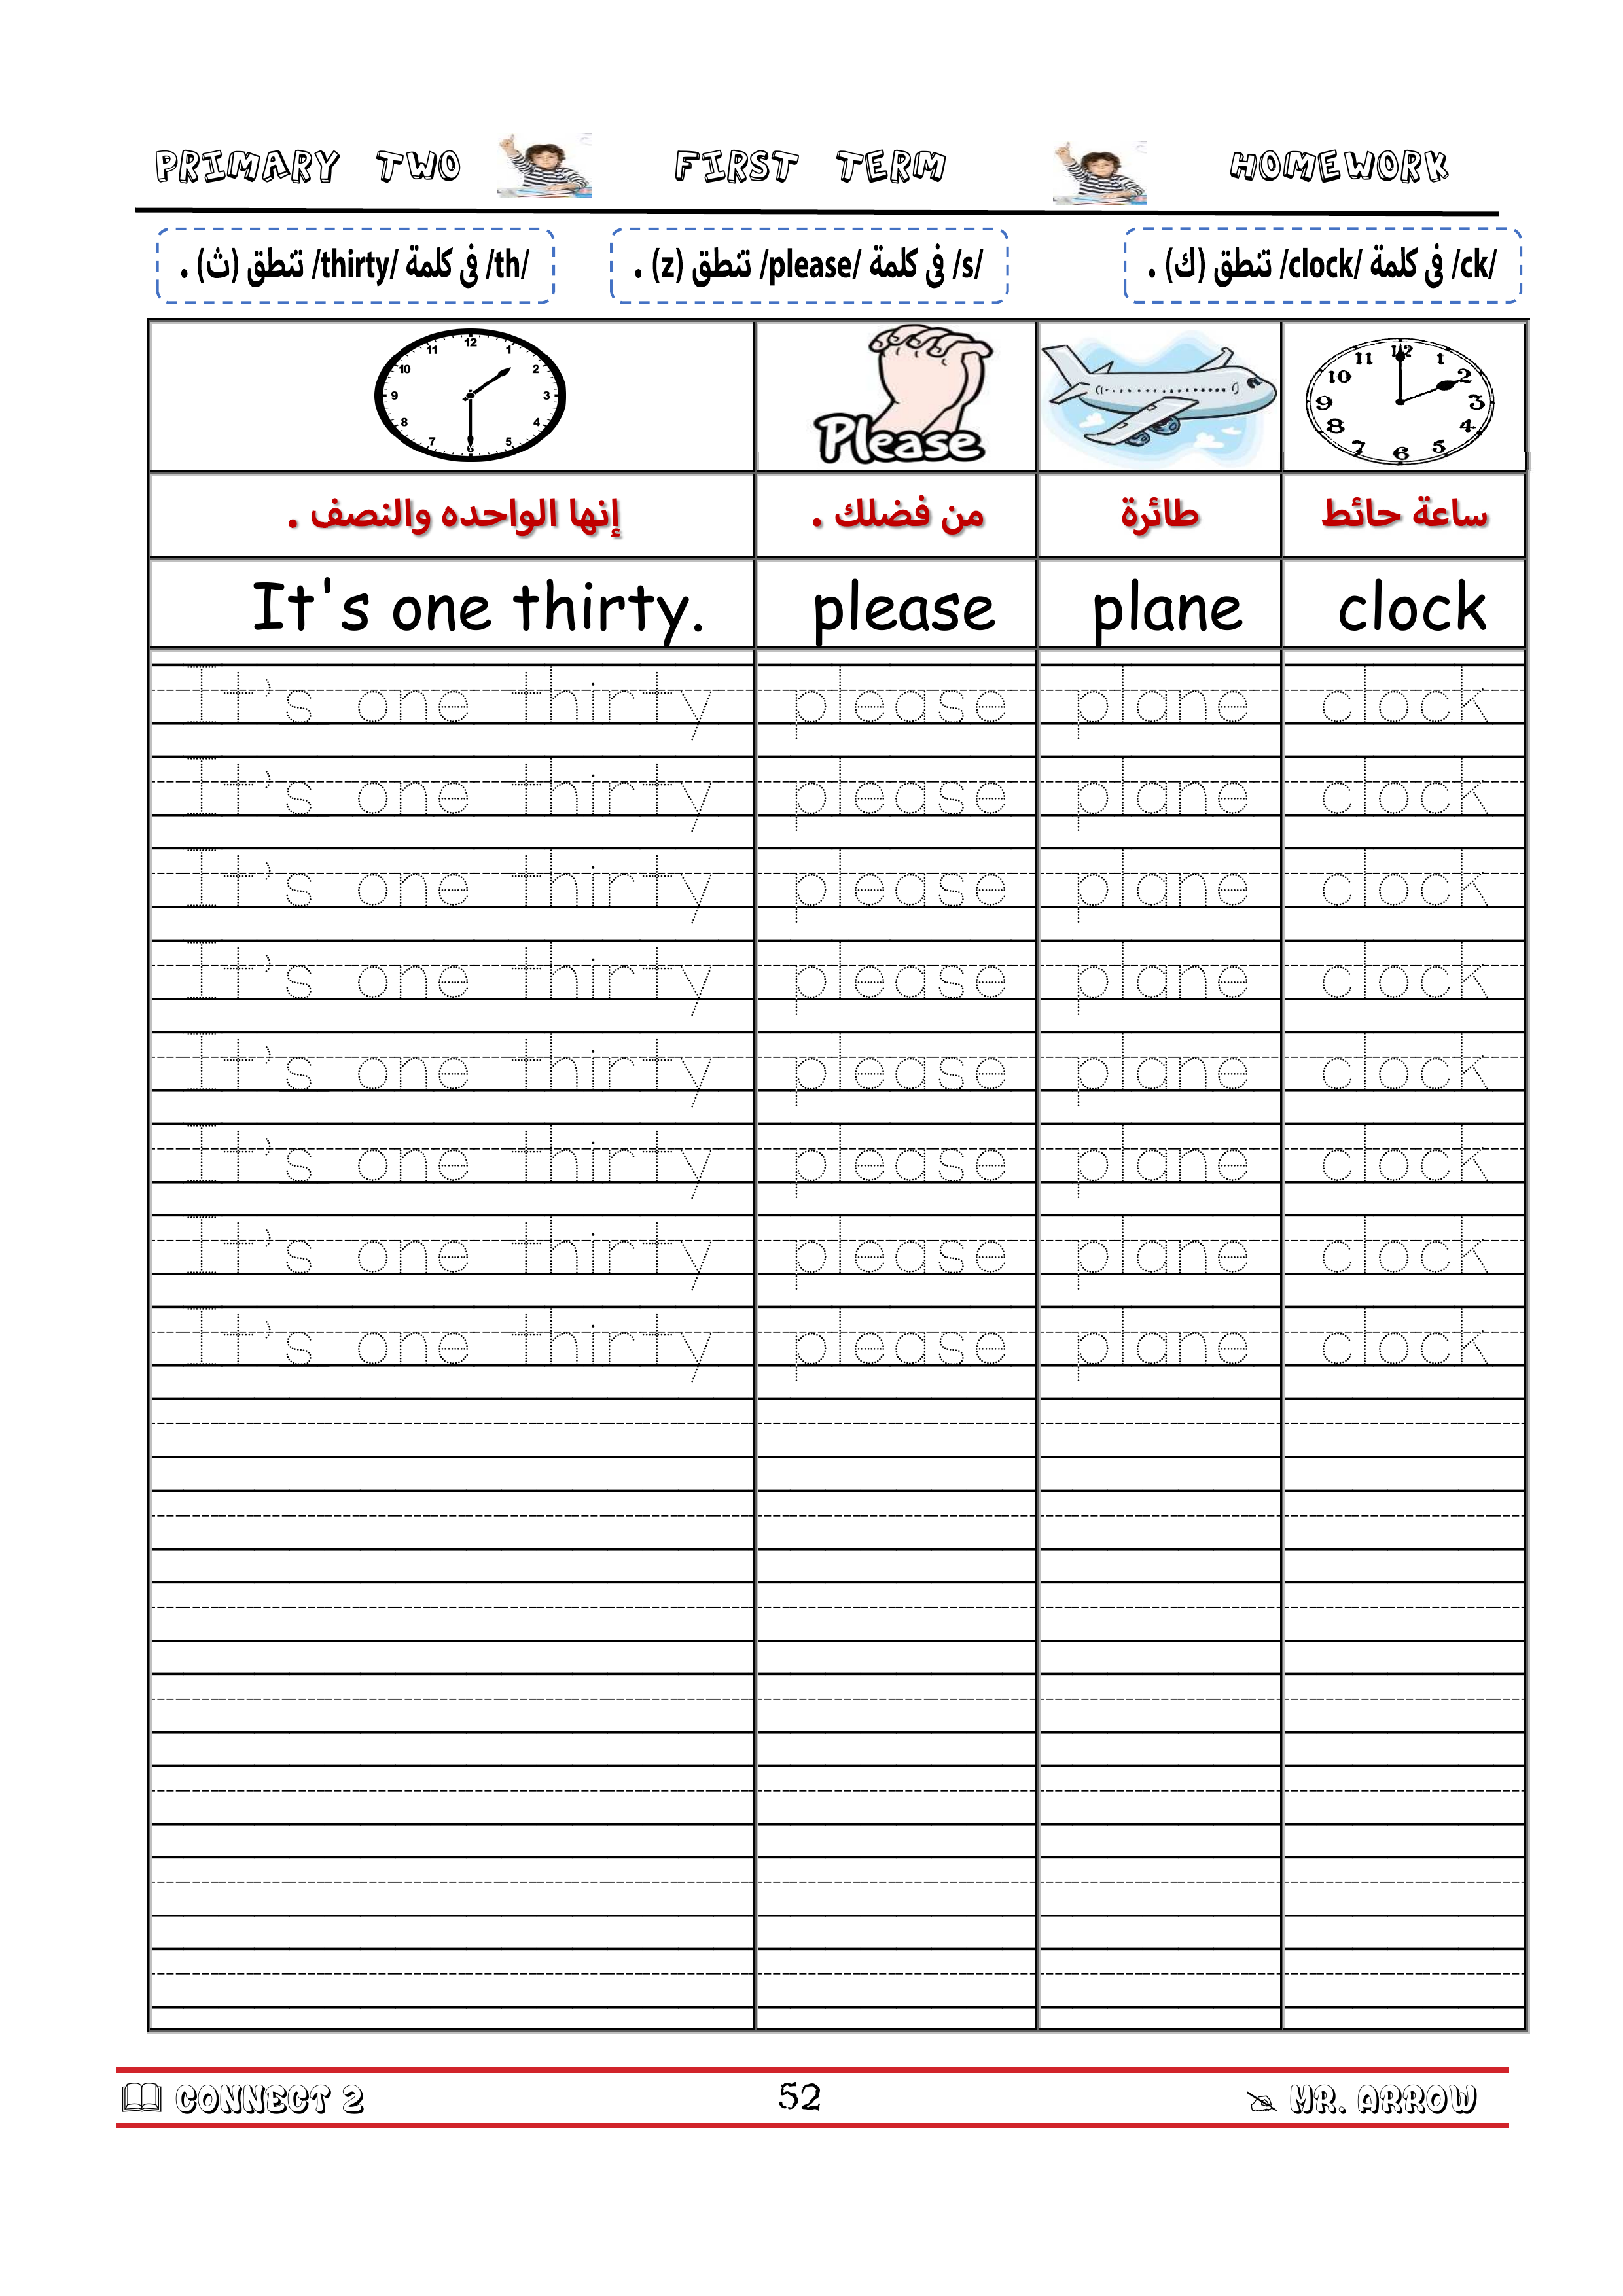 PRIMARY TWO FIRST TERM HOMEWORK
/th/ فى كلمة /thirty/ تنطق (ث) . /s/ فى كلمة /please/ تنطق (z) . /ck/ فى كلمة /clock/ تنطق (ك) .
Please
إنها الواحده والنصف . من فضلك . طائرة ساعة حائط
It's one thirty. please plane clock
It's one thirty please plane clock
It's one thirty please plane clock
It's one thirty please plane clock
It's one thirty please plane clock
It's one thirty please plane clock
It's one thirty please plane clock
It's one thirty please plane clock
It's one thirty please plane clock
CONNECT 2 52 MR. ARROW